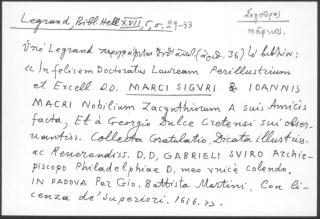 Legrand, Bibl Hell XVII, 5, σ. 29-33
Σιγοῦρος
Μάρκος.
Ὑπὸ Legrand περιγράφεται (σελ. 36) τὸ βιβλίον:
"In felicem Doctoratus Lauream Perillustrium
et Excell D.D. MARCI SIGURI & IOANNIS
MACRI Nobilium Zacynthiorum A suis Amicis
facta, Et à Georgio Dulce Cretensi sui obser-
vantiss. Collecta Gratulatio, Dicata illustriss.
ac Reverendiss. D.D. GABRIELI SVIRO Archie-
piscopo Philadelphiae D. meo vnicè colendo,
IN PADOVA Per Gio. Battista Martini, Con li-
cenza de' superiori. 1616.